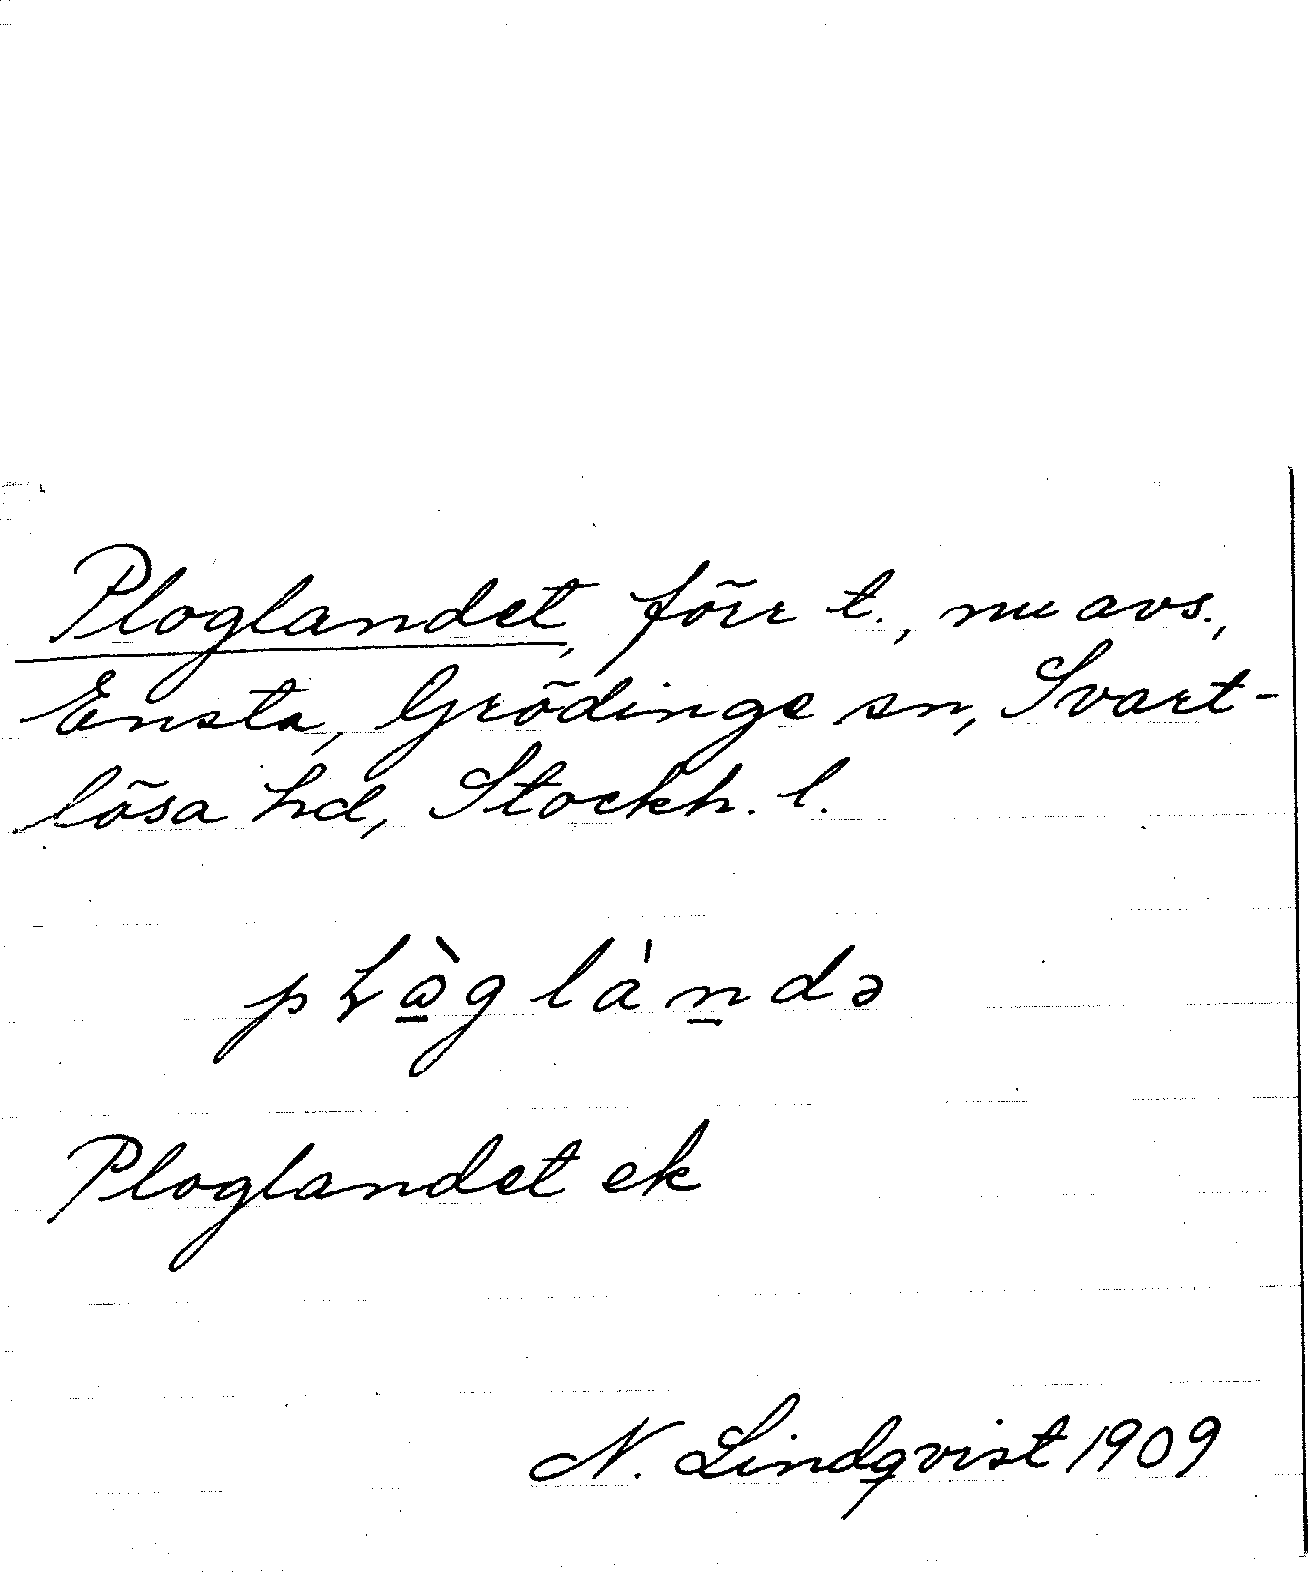 Ploglandet, förr t., nu avs.,
Ensta, Grödinge sn, Svart-
lösa hd, Stockh. l.
Ploglandet ek
N. Lindqvist 1909